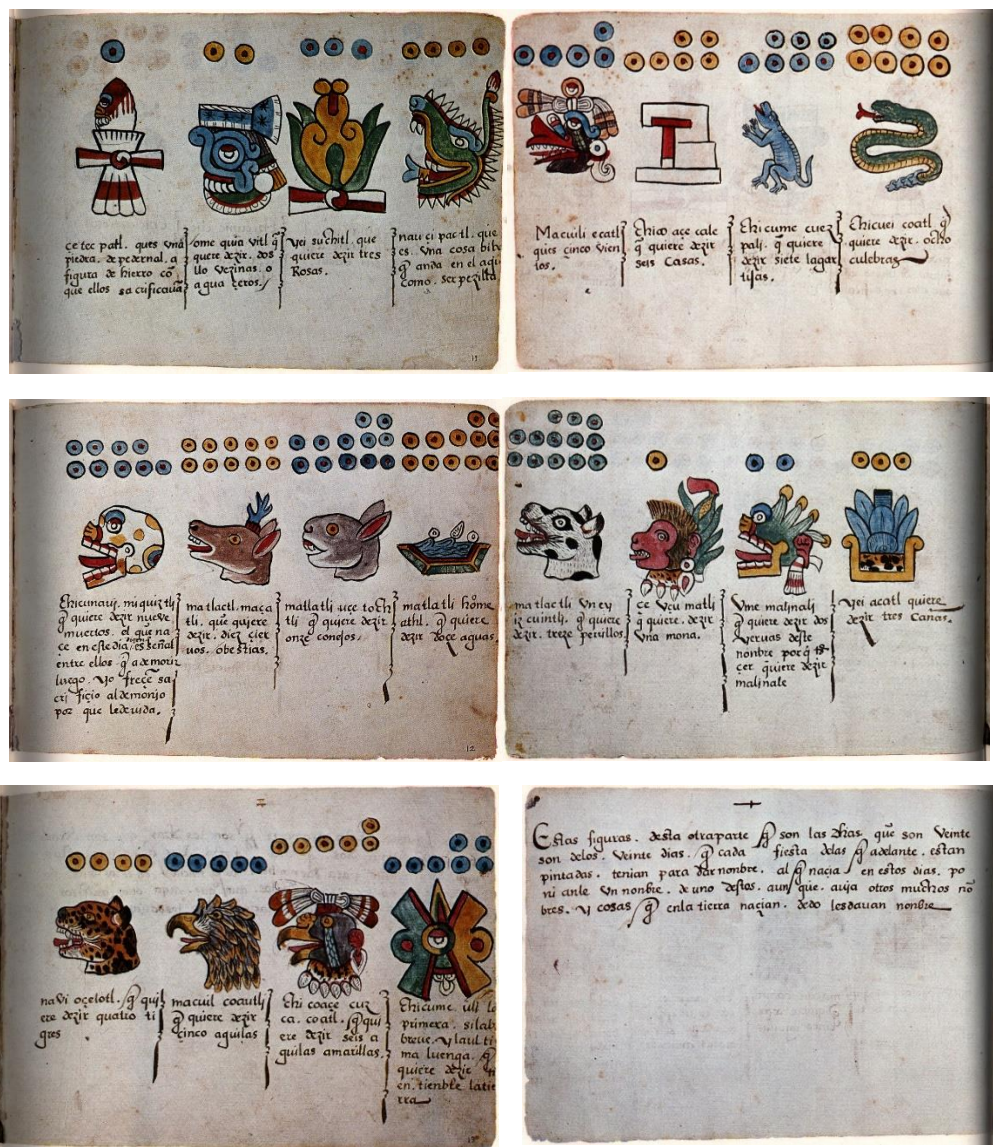 çe tec patl. ques vna
piedra. de pedernal. a
figura de hierro cō
que ellos sacrificauā
ome quia vitl q̄
quere dezir. dos
llo vezinas. o
agua çeros.
yei suchitl. que
quiere dezir tres
Rosas.
nau ci pactl. que
es. vna cosa bibe
q̄ anda en el agu
como. serpezilla
13
Macuili ecatl
ques cinco vien
tos.
chico açe cale
q̄ quiere dezir
seis casas.
chicume cuez
pali. q̄ quiere
dezir siete lagar
tijas.
chicuei coatl q̄
quiere dezir. ocho
culebras
chicunavi. miquiztli
q̄ quiere dezir nueve
muertos. el que na
çe en este dia es señal
entre ellos q̄ a de morir
luego. y o freçe sa
cri fiçio al demonio
por que le de vida.
matlactl. maça
tli. que quiere
dezir. diez çier
uos. o bestias.
matlatli. uçe toch
tli q̄ quiere dezir
onze conejos.
matlatli home
athl. q̄ quiere
dezir doçe aguas
12
matlactli vn ey
iz cuintli. q̄ quiere
dezir. treze perrillos
çe uçu matli
q̄ quiere. dezir
vna mona.
vme malinali
q̄ quiere dezir dos
yeruas deste
nonbre por q̄
çer quiere dezir
malinale
yei acatl quiere
dezir tres cañas.
navi oçelotl. q̄ qui
ere dezir quatro ti
gres
macuil coautli
q̄ quiere dezir
cinco aguilas
chi coaçe cuz
ca. coatl. q̄ qui
ere dezir seis a
guilas amarillas.
chicume. ull. la
primera. silab
breue. y la ul ti
ma luenga. q̄
quiere dezir
en. tienble la tie
rra
Estas figuras. desta otra parte q̄ son las dhas. que son veinte
son de los. veinte dias. q̄ cada fiesta de las q̄ adelante. estan
pintadas. tenian para dar nonbre. al q̄ naçia. en estos dias. po
nianle. vn nonbre. de uno destos. aun que. auia otros muchos nō
bres. y cosas q̄ en la tierra naçian. de do les dauan nonbre